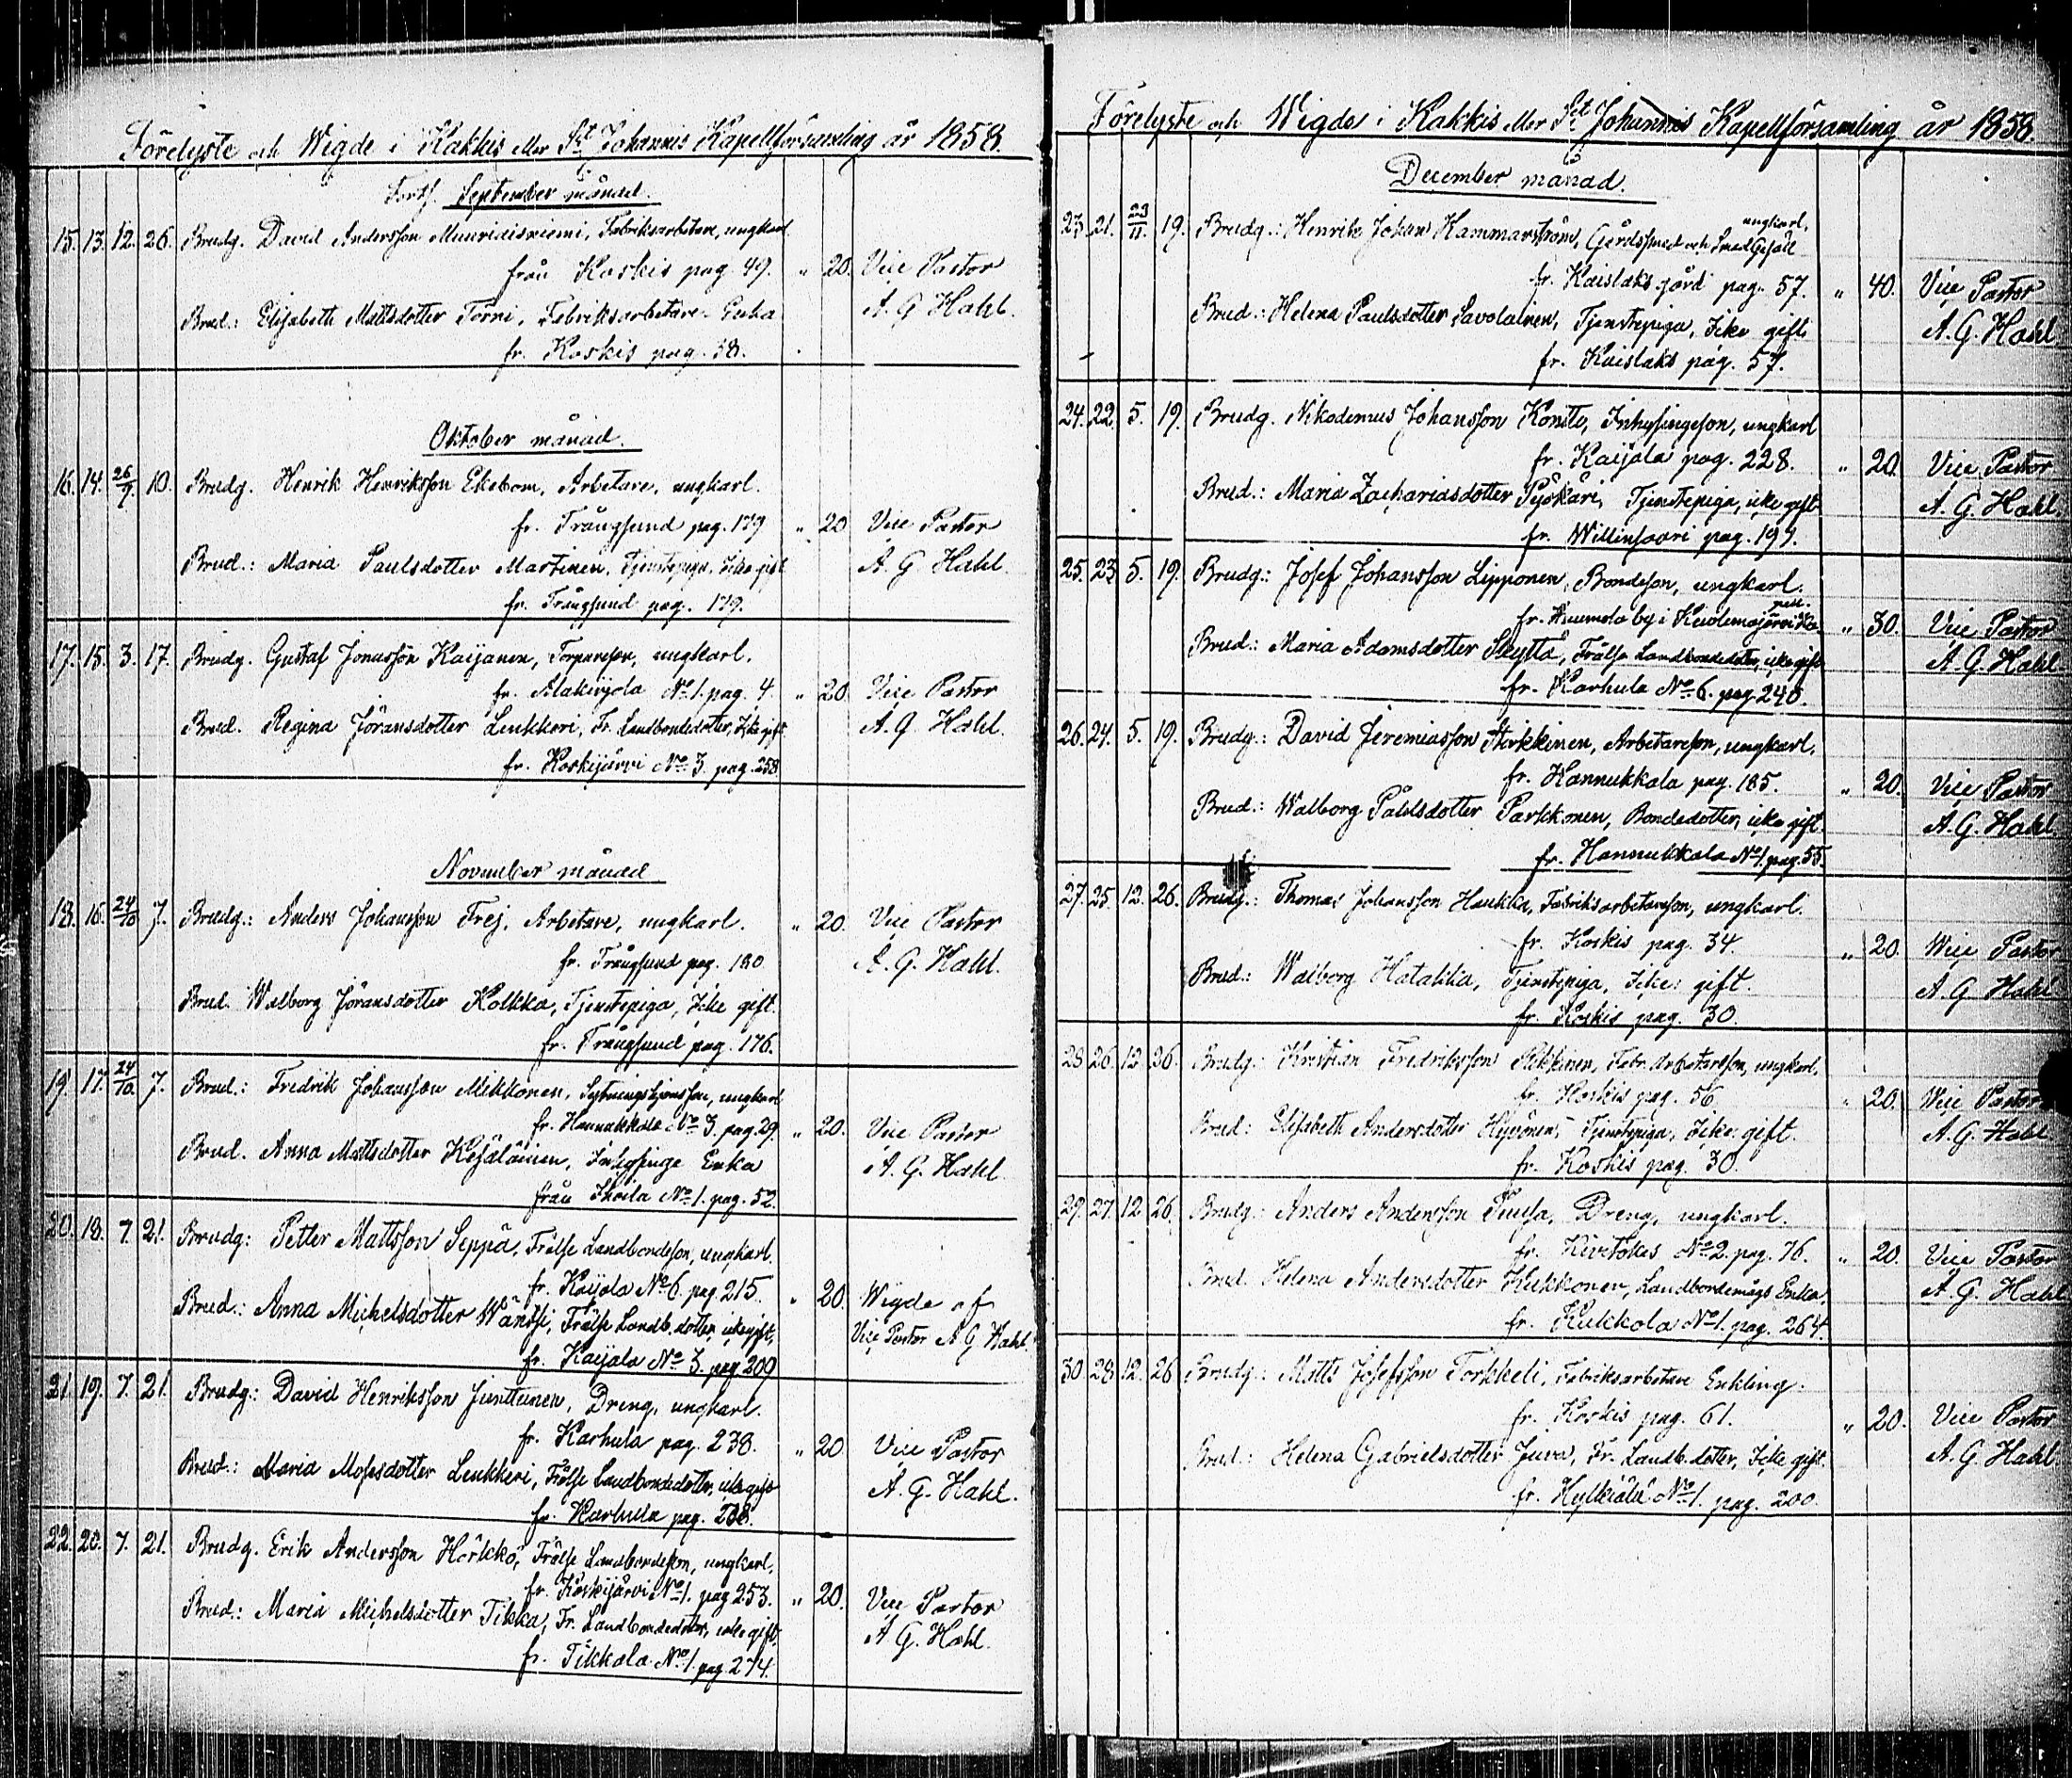 Förelyste och Wigde i Kakkis eller S:t Johannis Kapellförsamling år 1858.
Forts. September månad.
15. 13. 12. 26. Brudg. David Andersson Muuriaisniemi, Fabriksarbetare, ungkarl
från Koskis pag. 49. " 20. Vice Pastor
Brud.: Elisabeth Mattsdotter Törni, Fabriksarbetare-Enka A. G. Hahl.
fr. Koskis pag. 38.
Oktober månad.
16. 14. 26/9. 10. Brudg. Henrik Henriksson Ekebom, Arbetare, ungkarl.
fr. Trångsund pag. 179 " 20 Vice Pastor
Brud.: Maria Paulsdotter Martinen, Tjenstepiga, Icke gift A. G. Hahl.
fr. Trångsund pag. 179.
17. 15. 3. 17. Brudg. Gustaf Jonasson Kaijanen, Torpareson, ungkarl.
fr. Alakirjola No 1. pag. 4. " 20. Vice Pastor
Brud. Regina Jöransdotter Leukkeri, Fr. Landbondedotter, Icke gift A. G. Hahl.
fr. Koskijärvi No 3. pag. 258
November månad
18. 16. 24/10 7. Brudg.: Anders Johansson Frej, Arbetare, ungkarl. " 20. Vice Pastor
fr. Trångsund pag. 180 A. G. Hahl.
Brud. Walborg Jöransdotter Kolkka, Tjenstepiga, Icke gift.
fr. Trångsund pag. 176.
19. 17. 24/10. 7. Brud.: Fredrik Johansson Mikkonen, Sytningshjonsson, ungkarl
fr. Hannukkala No 3. pag. 29. " 20. Vice Pastor
Brud. Anna Mattsdotter Kesäläinen, Inhysinge Enka A. G. Hahl
från Ihoila No 1. pag. 52.
20. 18. 7. 21. Brudg: Petter Mattsson Seppä, Frälse Landbondeson, ungkarl.
fr. Kaijala No 6. pag. 215. " 20. Wigde af
Brud.: Anna Michelsdotter Wäntsi, Frälse Landb. dotter, icke gift, Vice Pastor A G Hahl
fr. Kaijala No 3. pag. 209
21. 19. 7. 21. Brudg.: David Henriksson Junttunen, Dreng, ungkarl.
fr. Karhula pag. 238. " 20. Vice Pastor
Brud.: Maria Mosesdotter Leukkeri, Frälse Landbondedotter, icke gift A. G. Hahl.
fr. Karhula pag. 238.
22. 20. 7. 21. Brudg. Erik Andersson Härkkö, Frälse Landbondeson, ungkarl.
fr. Koskijärvi No 1. pag. 253. " 20. Vice Pastor
Brud.: Maria Michelsdotter Tikka, Fr. Landbondedotter, icke gift, A. G. Hahl.
fr. Tikkala No 1. pag. 274.
Förelyste och Wigde i Kakkis eller S:t Johannis Kapellförsamling år 1858.
December månad.
ungkarl,
23. 21. 23/11. 19. Brudg.: Henrik Johan Hammarström, Gårdssmed och Smed Gesäll
fr. Kaislaks gård pag. 57. " 40. Vice Pastor
Brud.: Helena Paulsdotter Savolainen, Tjenstepiga, Icke gift A. G. Hahl
fr. Kaislaks pag. 57.
24. 22. 5. 19. Brudg. Nikodemus Johansson Konste, Inhysingeson, ungkarl
fr. Kaijala pag. 228. " 20. Vice Pastor
Brud.: Maria Zachariasdotter Pyökäri, Tjenstepiga, icke gift A. G. Hahl.
fr. Willinsaari pag. 199.
25. 23. 5. 19. Brudg.: Josef Johansson Lipponen, Bondeson, ungkarl.
fr. Huumola by i Kuolemajärvi Ka-
pell. " 30. Vice Pastor
Brud.: Maria Adamsdotter Skyttä, Frälse Landbondedotter, icke gift A. G. Hahl
fr. Karhula No 6. pag. 240.
26. 24. 5. 19. Brudg.: David Jeremiasson Hirkkinen, Arbetareson, ungkarl.
fr. Hannukkala pag. 185. " 20. Vice Pastor
Brud.: Walborg Påhlsdotter Parkkonen, Bondedotter, icke gift. A. G. Hahl.
fr. Hannukkala No 1. pag. 55.
27. 25. 12. 26. Brudg.: Thomas Johansson Haukka, Fabriksarbetareson, ungkarl.
fr. Koskis pag. 34. " 20. Vice Pastor
Brud.: Walborg Hatakka, Tjenstepiga, Icke gift. A. G. Hahl
fr. Koskis pag. 30.
28. 26. 12. 26. Brudg: Kristian Fredriksson Pekkinen, Fabr. Arbetareson, ungkarl.
fr. Koskis pag. 56 " 20. Vice Pastor
Brud: Elisabeth Andersdotter Hyvönen, Tjenstepiga, Icke gift. A. G. Hahl
fr. Koskis pag. 30.
29. 27. 12. 26. Brudg.: Anders Andersson Tuusa, Dreng, ungkarl.
fr. Kivetokes No 2. pag. 76. " 20. Vice Pastor
Brud. Helena Andersdotter Kukkonen, Landbondemågs Enka, A. G. Hahl
fr. Kukkola No 1. pag. 264.
30. 28. 12. 26 Brudg: Matts Josefsson Torkkeli, Fabriksarbetare Enkling.
fr. Koskis pag. 61. " 20. Vice Pastor
Brud: Helena Gabrielsdotter Juva, Fr. Landb. dotter, Icke gift. A. G. Hahl
fr. Hylkiälä No 1. pag. 200.